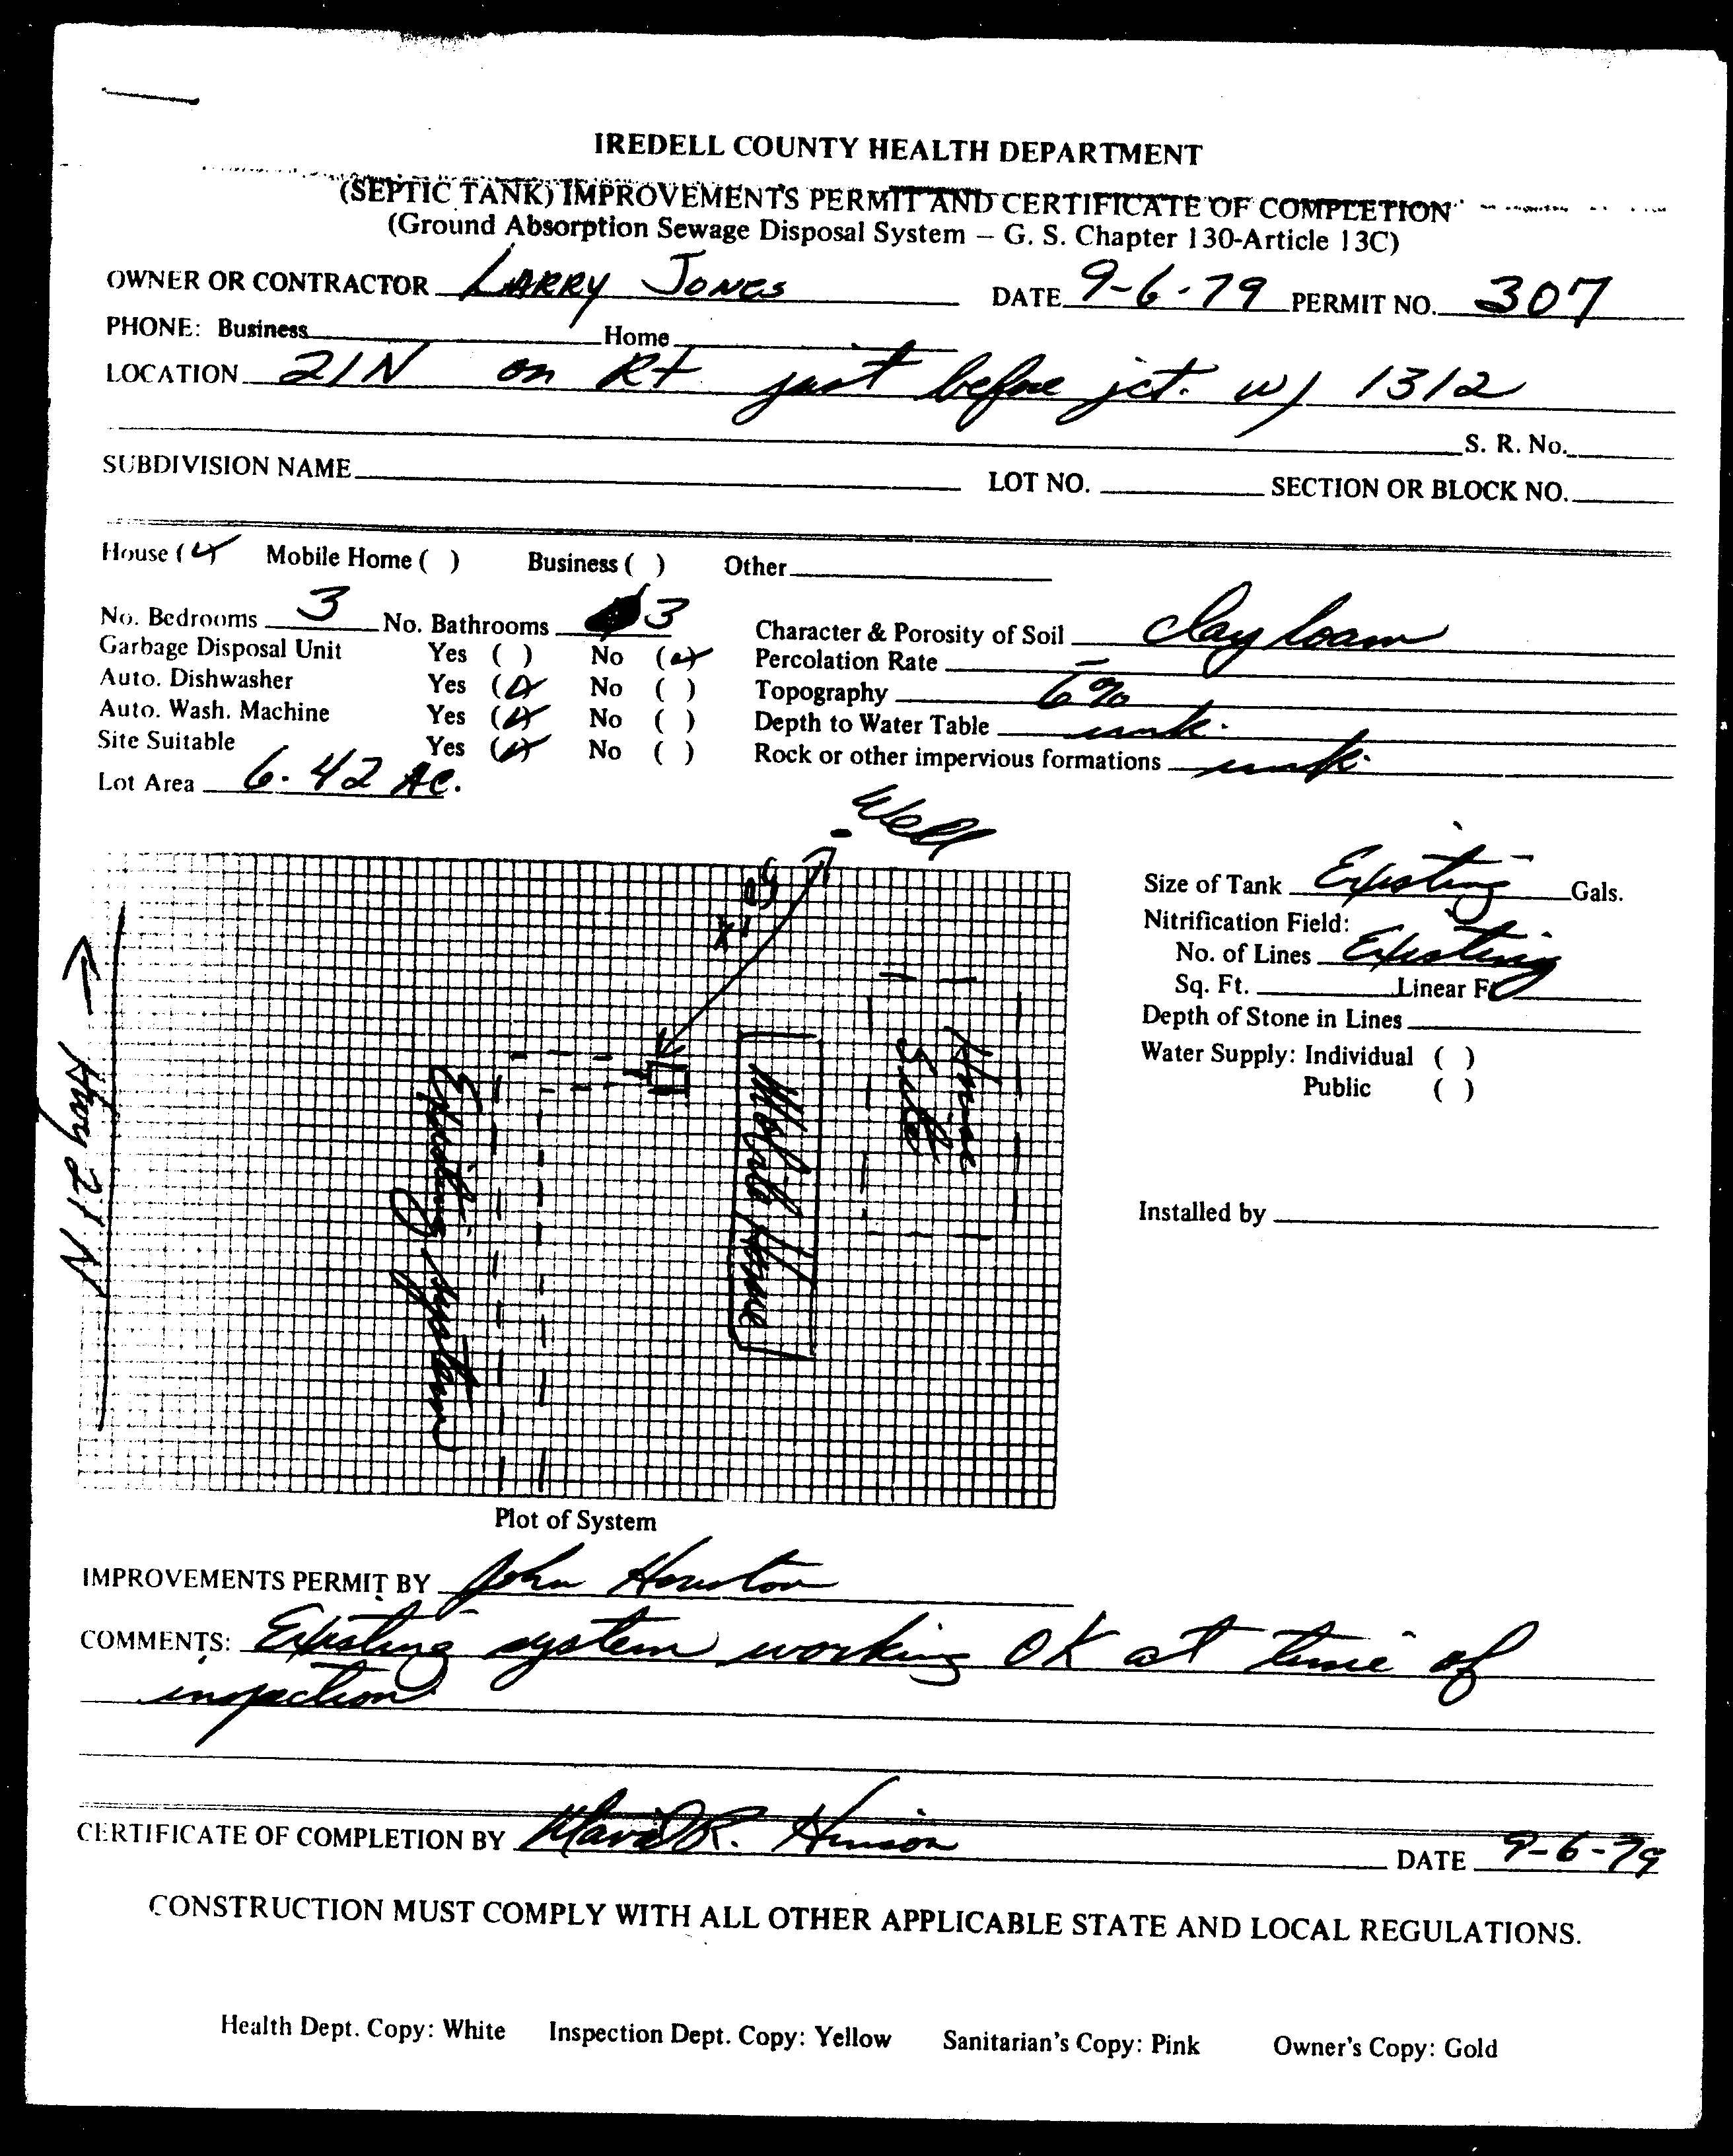 IREDELL COUNTY HEALTH DEPARTMENT
(SEPTIC TANK) IMPROVEMENTS PERMIT AND CERTIFICATE OF COMPLETION
(Ground Absorption Sewage Disposal System – G. S. Chapter 130-Article 13C)
OWNER OR CONTRACTOR LARRY JONES DATE 9-6-79 PERMIT NO. 307
PHONE: Business Home
LOCATION 21N on Rt just before jct. w/ 1312
S. R. No.
SUBDIVISION NAME LOT NO. SECTION OR BLOCK NO.
House ( ) Mobile Home ( ) Business ( ) Other
No. Bedrooms 3 No. Bathrooms 3 Character & Porosity of Soil Clay loam
Garbage Disposal Unit Yes ( ) No ( ) Percolation Rate –
Auto. Dishwasher Yes ( ) No ( ) Topography 6%
Auto. Wash. Machine Yes ( ) No ( ) Depth to Water Table unk.
Site Suitable Yes ( ) No ( ) Rock or other impervious formations unk.
Lot Area 6.42 Ac.
Well
Size of Tank Existing Gals.
Nitrification Field:
No. of Lines Existing
Sq. Ft. Linear Ft.
Depth of Stone in Lines
Water Supply: Individual ( )
Public ( )
Installed by
Hwy 21 N
Existing System
Mobile Home
House
Site
Plot of System
IMPROVEMENTS PERMIT BY John Houston
COMMENTS: Existing system working OK at time of
inspection
CERTIFICATE OF COMPLETION BY R. Hinson DATE 9-6-79
CONSTRUCTION MUST COMPLY WITH ALL OTHER APPLICABLE STATE AND LOCAL REGULATIONS.
Health Dept. Copy: White Inspection Dept. Copy: Yellow Sanitarian's Copy: Pink Owner's Copy: Gold